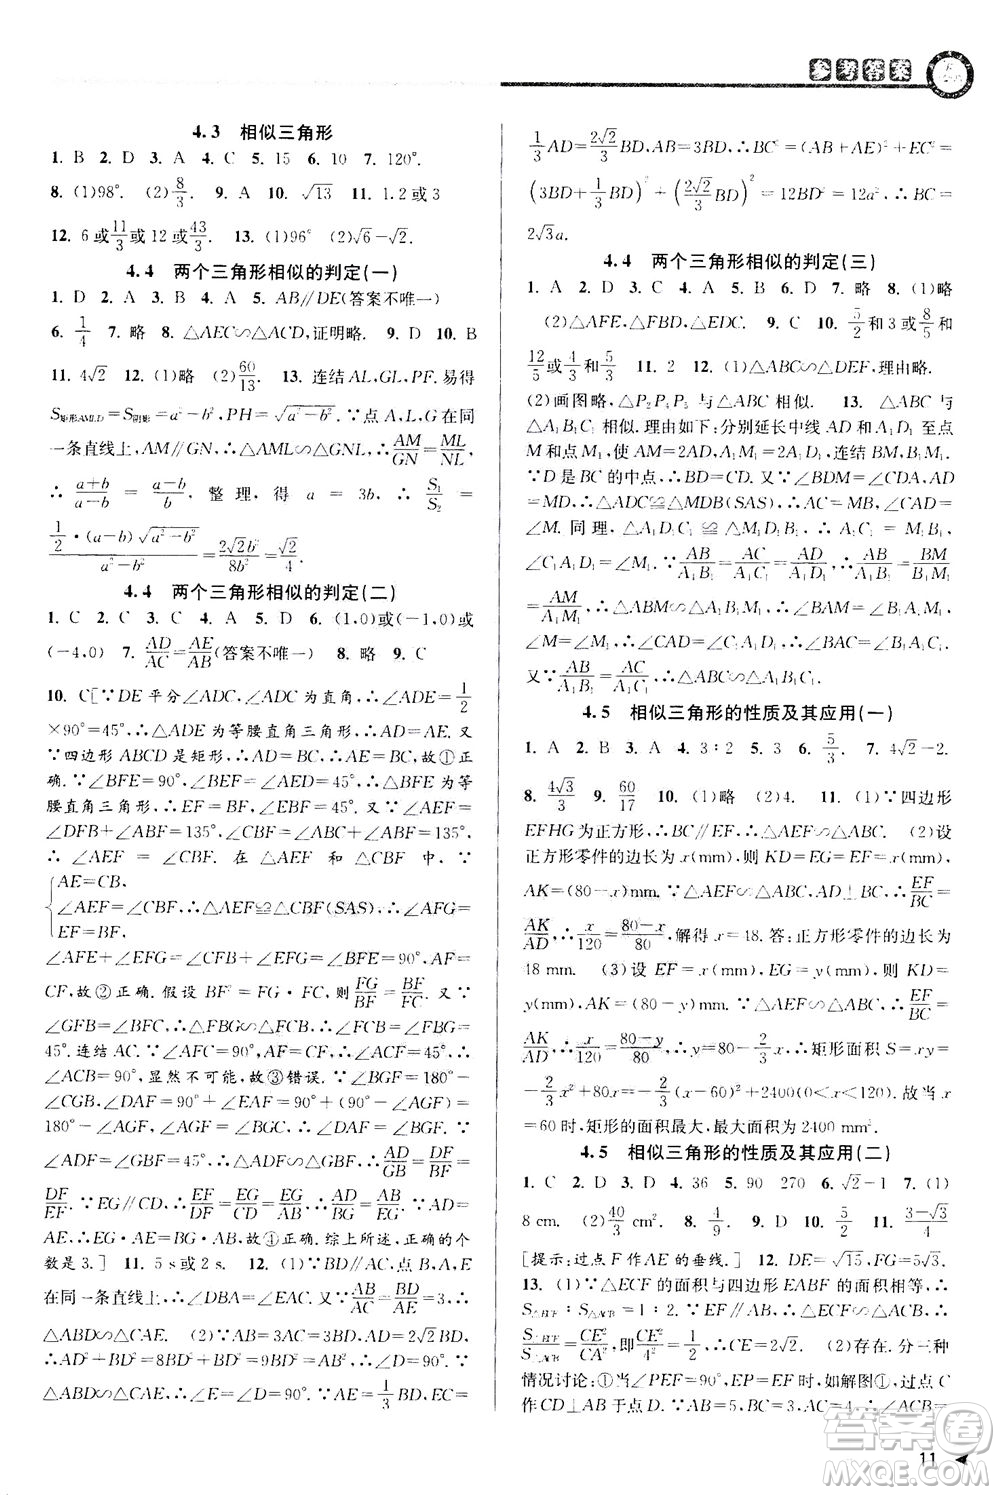 参考答案
4.3 相似三角形
1. B 2. D 3. A 4. C 5. 15 6. 10 7. 120°.
8. (1)98° (2)8/3 9. A 10. √13 11. 1.2或3
12. 6或11/3或12或43/3 13. (1)96° (2)√6-√2.
4.4 两个三角形相似的判定(一)
1. D 2. A 3. B 4. A 5. AB//DE(答案不唯一)
6. 1/4 7. 略 8. △AEC∽△ACD,证明略. 9. D 10. B
11. 4√2 12. (1)略 (2)60/13 13. 连结 AL,GL,PF. 易得
S矩形AMLD=S阴影=a²-b²,PH=√(a²-b²). ∵点 A,L,G 在同
一条直线上,AM//GN,∴△AML∽△GNL,∴AM/GN=ML/NL,
∴(a+b)/(a-b)=(a-b)/b,整理,得 a=3b,∴S₁/S₂=
(1/2·(a-b)·√(a²-b²))/(a²-b²)=2√2b²/8b²=√2/4.
4.4 两个三角形相似的判定(二)
1. C 2. C 3. C 4. A 5. D 6. (1,0)或(-1,0)或
(-4,0) 7. AD/AC=AE/AB(答案不唯一) 8. 略 9. C
10. C[∵DE 平分∠ADC,∠ADC 为直角,∴∠ADE=1/2
×90°=45°,∴△ADE 为等腰直角三角形,∴AD=AE. 又
∵四边形 ABCD 是矩形,∴AD=BC,∴AE=BC,故①正
确. ∵∠BFE=90°,∠BEF=∠AED=45°,∴△BFE 为等
腰直角三角形,∴EF=BF. 又∵∠AEF=
∠DFB+∠ABF=135°,∠CBF=∠ABC+∠ABF=135°,
∴∠AEF=∠CBF. 在△AEF 和△CBF 中,∵
AE=CB,
∠AEF=∠CBF,∴△AEF≌△CBF(SAS),∴∠AFG+
EF=BF,
∠AFE+∠EFG=∠CFB+∠EFG=∠EFB=90°,AF=
CF,故②正确. 假设 BF²=FG·FC,则FG/BF=BF/FC. ∵
∠GFB=∠BFC,∴△FBG∽△FCB,∴∠FBG=∠FCB=
45°. 连结 AC. ∵∠AFC=90°,AF=CF,∴∠ACF=45°,∴
∠ACB=90°,显然不可能,故③错误. ∵∠BGF=180°-
∠CGB,∠DAF=90°+∠EAF=90°+(90°-∠AGF)=
180°-∠AGF,∠AGF=∠BGC,∴∠DAF=∠BGF. ∵
∠ADF=∠FBG=45°,∴△ADF∽△GBF,∴AD/GB=DF/BF=
DF/EF. ∵EG//CD,∴EF/DF=EG/CD=EG/AB,∴AD/AB=BG/GE. ∵AD=
AE,∴EG·AE=BG·AB,故④正确. 综上所述,正确的个
数是3.] 11. 5 s或2 s. 12. (1)∵BD//AC,点 B,A,E
在同一条直线上,∴∠DBA=∠EAC. ∵AB/AC=BD/AE=3,∴
△ABD∽△CAE. (2)∵AB=3AC=3BD,AD=2√2BD,
∴AD²+BD²=8BD²+BD²=9BD²=AB²,∴∠D=90°. ∵
△ABD∽△CAE,∴∠E=∠D=90°. ∵AE=1/3BD,EC=
1/3AD=2√2/3BD,AB=3BD,∴BC²=(AB+AE)²+EC²=
(3BD+1/3BD)²+(2√2/3BD)²=12BD²=12a²,∴BC=
2√3a.
4.4 两个三角形相似的判定(三)
1. A 2. D 3. D 4. A 5. C 6. D 7. 略 8. (1)略
(2)△AFE,△FBD,△EDC. 9. C 10. 5/2和3或8/5和
12/5或4/3和5/3 11. 2 12. (1)△ABC∽△DEF,理由略.
(2)画图略,△P₂P₄P₅与△ABC 相似. 13. △ABC∽
△A₁B₁C₁相似. 理由如下:分别延长中线 AD,A₁D₁至点
M 和点 M₁,使 AM=2AD,A₁M₁=2A₁D₁,连结 BM,B₁M₁.
∵D 是 BC 的中点,∴BD=CD. 又∵∠BDM=∠CDA,AD
=MD,∴△ADC≌△MDB(SAS),∴AC=MB,∠CAD=
∠M. 同理,△A₁D₁C₁≌△M₁D₁B₁,∴A₁C₁=M₁B₁,
∠C₁A₁D₁=∠M₁. ∵AB/A₁B₁=AC/A₁C₁=AD/A₁D₁,∴AB/A₁B₁=BM/B₁M₁=
AM/A₁M₁,∴△ABM∽△A₁B₁M₁,∴∠BAM=∠B₁A₁M₁,
∠M=∠M₁,∴∠CAD=∠C₁A₁D₁,∴∠BAC=∠B₁A₁C₁.
又∵AB/A₁B₁=AC/A₁C₁,∴△ABC∽△A₁B₁C₁.
4.5 相似三角形的性质及其应用(一)
1. A 2. B 3. A 4. 3:2 5. 3 6. 5/3. 7. 4√2-2.
8. 4√3/3 9. 60/17 10. (1)略 (2)4. 11. (1)∵四边形
EFHG 为正方形,∴BC//EF,∴△AEF∽△ABC. (2)设
正方形零件的边长为 x(mm),则 KD=EG=EF=x(mm),
AK=(80-x)mm. ∵△AEF∽△ABC,AD⊥BC,∴EF/BC=
AK/AD,∴x/120=(80-x)/80,解得 x=48. 答:正方形零件的边长为
48 mm. (3)设 EF=x(mm),EG=y(mm),∴KD=
y(mm),AK=(80-y)mm. ∵△AEF∽△ABC,∴EF/BC=
AK/AD,∴x/120=(80-y)/80,∴y=80-2/3x,∴矩形面积 S=xy=
-2/3x²+80x=-2/3(x-60)²+2400(0<x<120). 故当 x
=60时,矩形的面积最大,最大面积为2400 mm².
4.5 相似三角形的性质及其应用(二)
1. C 2. D 3. D 4. 36 5. 90 270 6. √2-1 7. (1)
8 cm. (2)40/3 cm². 8. 4/9 9. D 10. 5/2 11. (3-√3)/4
[提示:过点 F 作 AE 的垂线.] 12. DE=√15,FG=5√3.
13. (1)∵△ECF 的面积与四边形 EABF 的面积相等,∴
S△ECF:S△ACB=1:2. ∵EF//AB,∴△ECF∽△ACB,∴
S△ECF/S△ACB=CE²/CA²=1/2. ∵CA=4,∴CE=2√2. (2)存在. 分三种
情况讨论:①当∠PEF=90°,EP=EF 时,如解图①,过点 C
作 CD⊥AB 于点 D. ∵AB=5,BC=3,AC=4,∴∠C=
11
答案圈
MXQE.COM